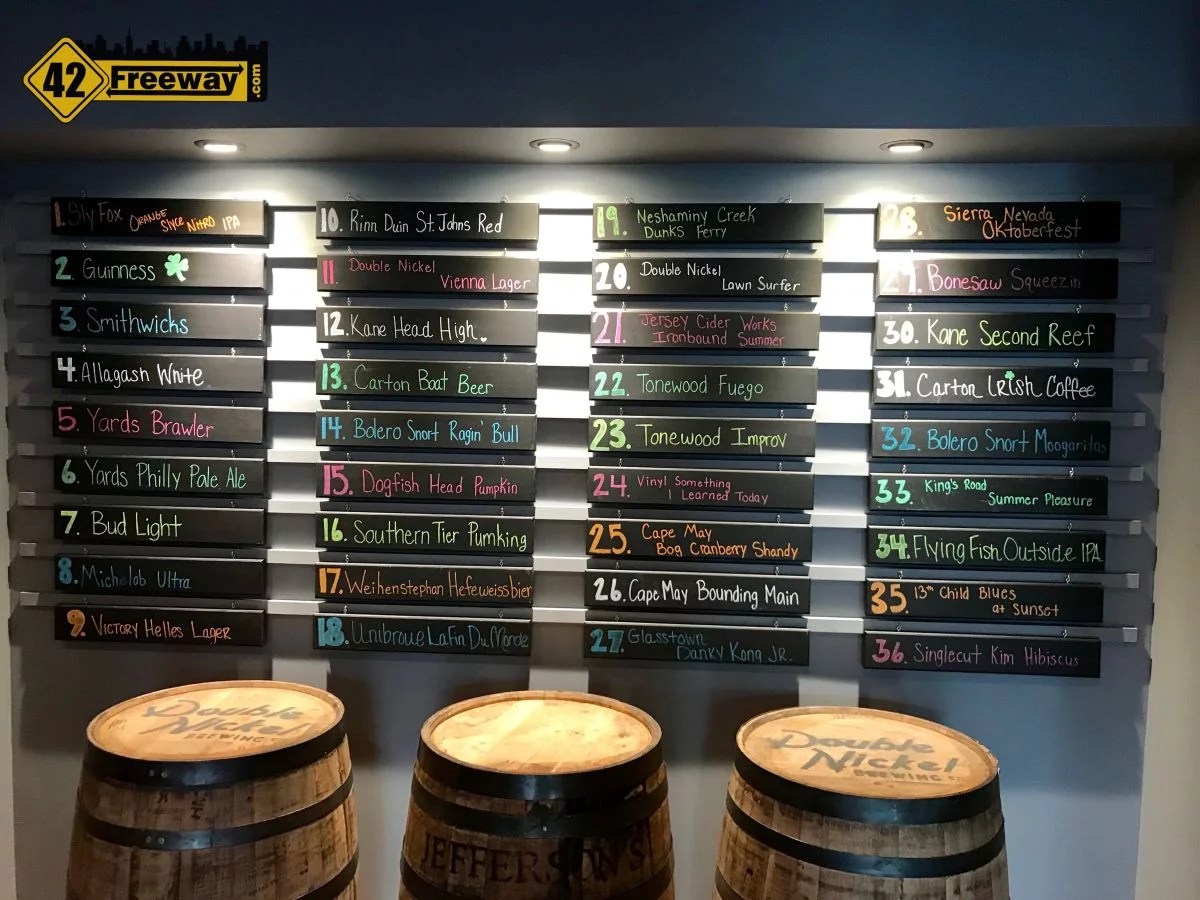 42 Freeway.com
1. Sly Fox Orange
Slyce Nitro IPA
2. Guinness
3. Smithwicks
4. Allagash White
5. Yards Brawler
6. Yards Philly Pale Ale
7. Bud Light
8. Michelob Ultra
9. Victory Helles Lager
10. Rinn Duin St. Johns Red
11. Double Nickel
Vienna Lager
12. Kane Head High.
13. Carton Boat Beer
14. Bolero Snort Ragin' Bull
15. Dogfish Head Pumpkin
16. Southern Tier Pumking
17. Weihenstephan Hefeweissbier
18. Unibroue La Fin Du Monde
19. Neshaminy Creek
Dunks Ferry
20. Double Nickel
Lawn Surfer
21. Jersey Cider Works
Ironbound Summer
22. Tonewood Fuego
23. Tonewood Improv
24. Vinyl Something
I Learned Today
25. Cape May
Bog Cranberry Shandy
26. Cape May Bounding Main
27. Glasstown
Danky Kong JR.
28. Sierra Nevada
Oktoberfest
29. Bonesaw Squeezin
30. Kane Second Reef
31. Carton Irish Coffee
32. Bolero Snort Moogaritas
33. King's Road
Summer Pleasure
34. Flying Fish Outside IPA
35. 13th Child Blues
at Sunset
36. Singlecut Kim Hibiscus
Double
Nickel
BREWING
JEFFERSON'S
Double
Nickel
BREWING